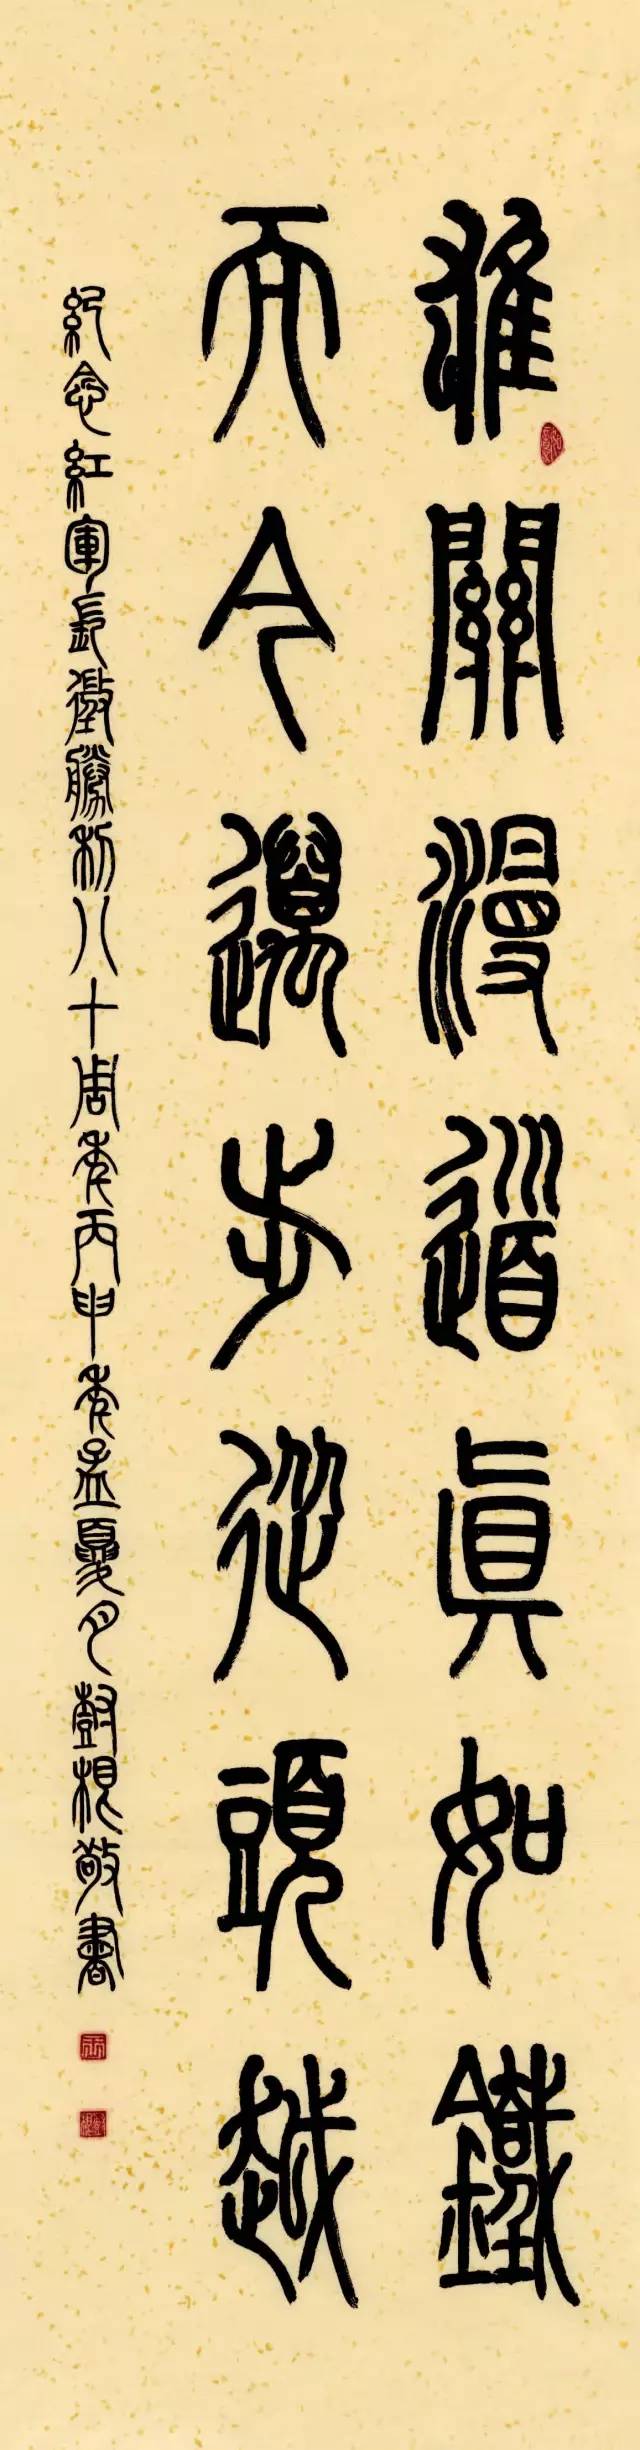 雄關漫道眞如鐵
而今邁步從頭越
紀念紅軍長徵勝利八十周年丙申年孟夏月敬書